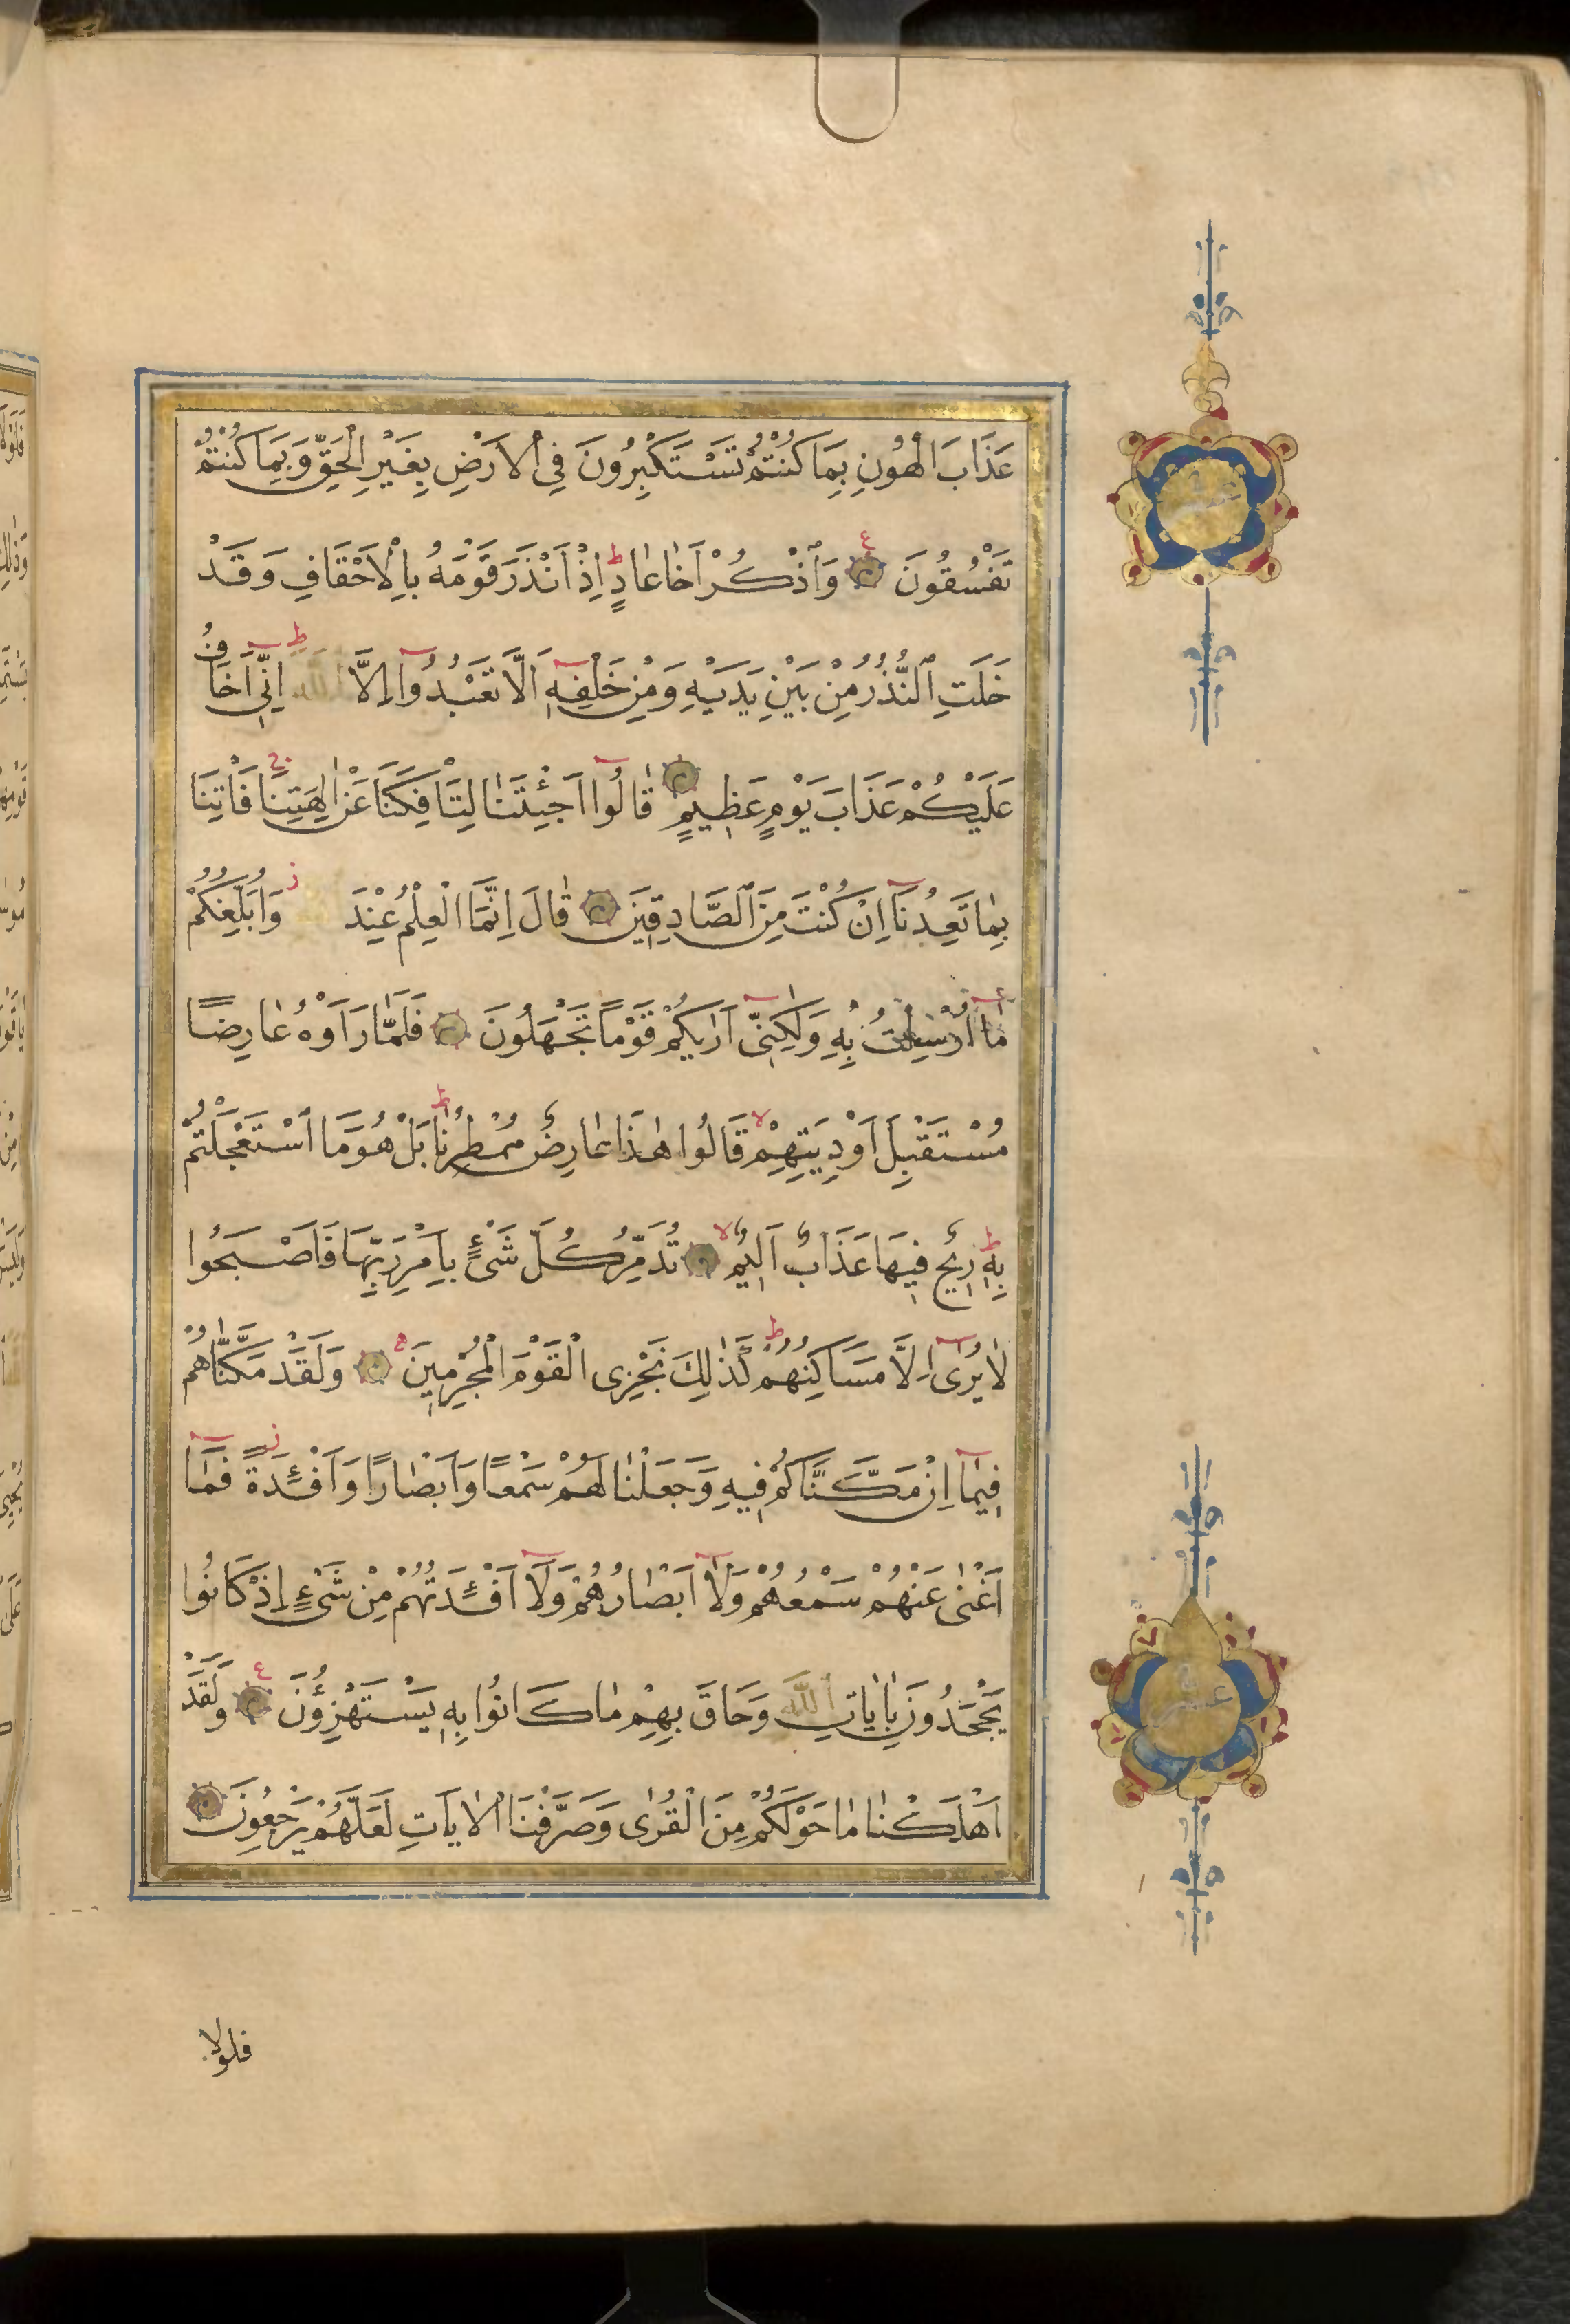 عَذَابَ الْهُونِ بِمَا كُنْتُمْ تَسْتَكْبِرُونَ فِي الْاَرْضِ بِغَيْرِ الْحَقِّ وَبِمَا كُنْتُمْ
تَفْسُقُونَ وَاذْكُرْ اَخَا عَادٍ اِذْ اَنْذَرَ قَوْمَهُ بِالْاَحْقَافِ وَقَدْ
خَلَتِ النُّذُرُ مِنْ بَيْنِ يَدَيْهِ وَمِنْ خَلْفِهِ اَلَّا تَعْبُدُوا اِلَّا اللّٰهَ اِنِّي اَخَافُ
عَلَيْكُمْ عَذَابَ يَوْمٍ عَظِيمٍ قَالُوا اَجِئْتَنَا لِتَأْفِكَنَا عَنْ اٰلِهَتِنَا فَأْتِنَا
بِمَا تَعِدُنَا اِنْ كُنْتَ مِنَ الصَّادِقِينَ قَالَ اِنَّمَا الْعِلْمُ عِنْدَ وَاُبَلِّغُكُمْ
مَا اُرْسِلْتُ بِهِ وَلٰكِنِّي اَرٰيكُمْ قَوْمًا تَجْهَلُونَ فَلَمَّا رَاَوْهُ عَارِضًا
مُسْتَقْبِلَ اَوْدِيَتِهِمْ قَالُوا هٰذَا عَارِضٌ مُمْطِرُنَا بَلْ هُوَ مَا اسْتَعْجَلْتُمْ
بِهِ رِيحٌ فِيهَا عَذَابٌ اَلِيمٌ تُدَمِّرُ كُلَّ شَيْءٍ بِاَمْرِ رَبِّهَا فَاَصْبَحُوا
لَا يُرٰى اِلَّا مَسَاكِنُهُمْ كَذٰلِكَ نَجْزِى الْقَوْمَ الْمُجْرِمِينَ وَلَقَدْ مَكَّنَّاهُمْ
فِيمَا اِنْ مَكَّنَّاكُمْ فِيهِ وَجَعَلْنَا لَهُمْ سَمْعًا وَاَبْصَارًا وَاَفْئِدَةً فَمَا
اَغْنٰى عَنْهُمْ سَمْعُهُمْ وَلَا اَبْصَارُهُمْ وَلَا اَفْئِدَتُهُمْ مِنْ شَيْءٍ اِذْ كَانُوا
يَجْحَدُونَ بِاٰيَاتِ اللّٰهِ وَحَاقَ بِهِمْ مَا كَانُوا بِهِ يَسْتَهْزِؤُنَ وَلَقَدْ
اَهْلَكْنَا مَا حَوْلَكُمْ مِنَ الْقُرٰى وَصَرَّفْنَا الْاٰيَاتِ لَعَلَّهُمْ يَرْجِعُونَ
فلولا